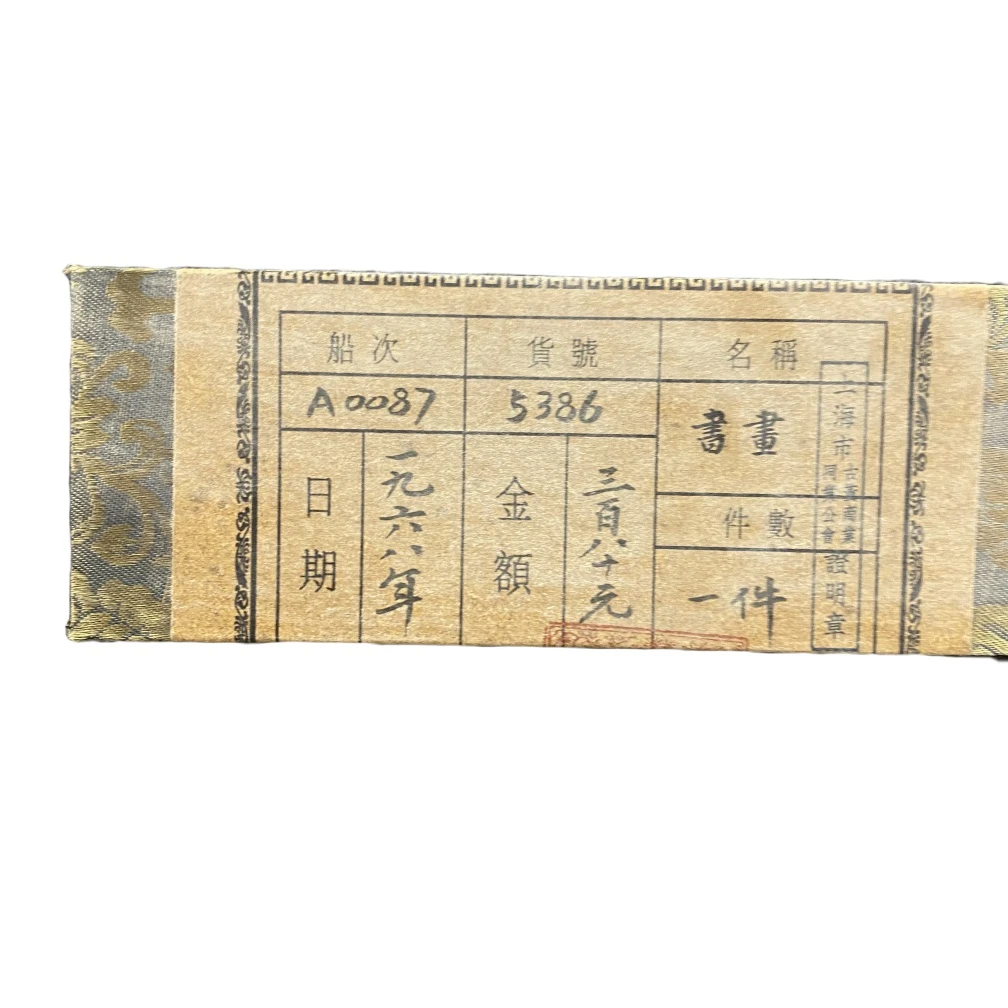 船次
貨號
名稱
A0087
5386
書畫
日期
一九六八年
金額
三百八十元
件數
一件
上海市
古玩商業
同業公會
證明章